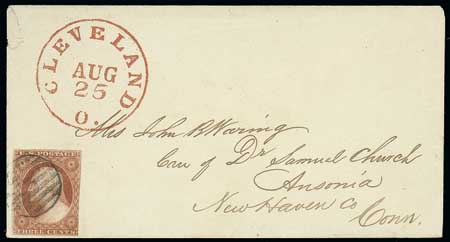 CLEVELAND
AUG
25
O.
Mrs John R Waring
Care of Dr Samuel Church
Ansonia
New Haven Co
Conn.
U.S. POSTAGE
THREE CENTS